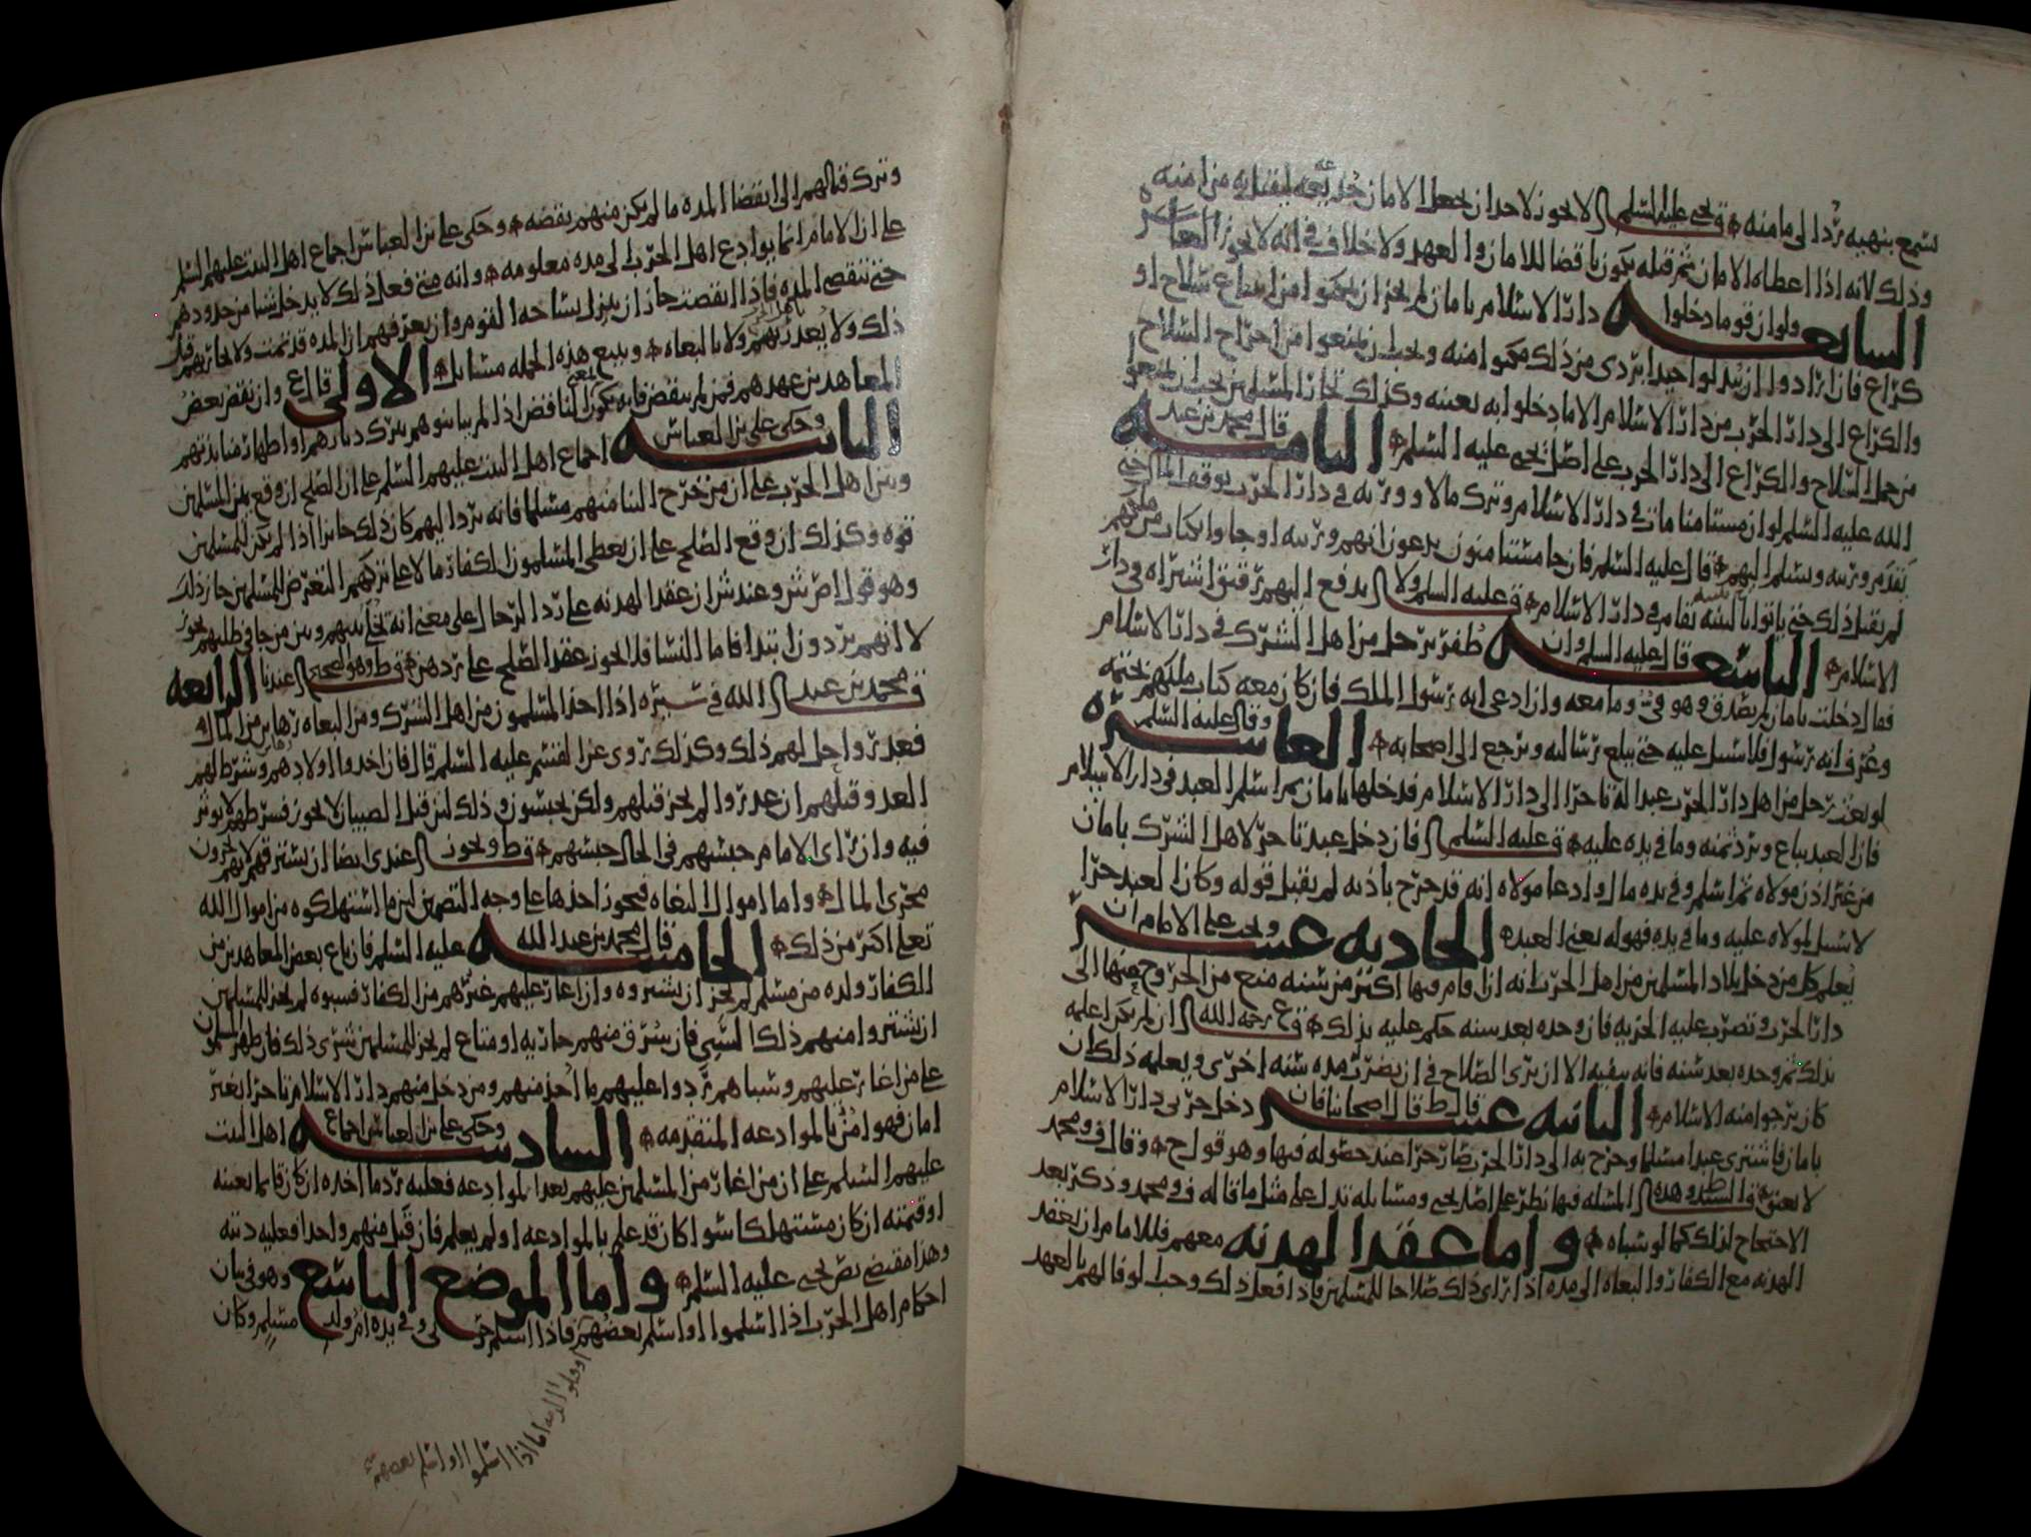 سمع بنهيه يرد الى مامنه ق يحيى عليه السلم لا يجوز لاحد ان يجعل الامان خديعه ليقتل به من امنه
وذلك لانه اذا اعطاه الامان ثم قتله يكون ناقضا للامان والعهد ولا خلاف في انه لا يجوز العدر
السابعه ولو ان قوما دخلوا دار الاسلام بامان لم يجز ان يمكنوا من ابتياع سلاح او
كراع فان ارادوا ان يبدلوا جيدا بردي من ذلك مكنوا منه ويجب ان يمنعوا من اخراج السلاح
والكراع الى دار الحرب من دار الاسلام الا ما دخلوا به بعينه وكذلك تجار المسلمين يجب ان يمنعوا
من حمل السلاح والكراع الى دار الحرب على اصل يحيى عليه السلم الثامنه قال محمد بن عبد
الله عليه السلم لو ان مستامنا مات في دار الاسلام وترك مالا وورثه في دار الحرب يوقف المال حتى
يقدم ورثته ويسلم اليهم قال عليه السلم فان جا مستامنون يدعون انهم ورثته او جاوا بكتاب من ملكهم
لم يقبل ذلك حتى ياتوا ببينه تقام في دار الاسلام ق عليه السلم ولا يدفع اليهم رقيق اشتراه في دار
الاسلام التاسعه قال عليه السلم وان ظفر برجل من اهل الشرك في دار الاسلام
فقال دخلت بامان لم يصدق وهو في وما معه وان ادعى انه رسول الملك فان كان معه كتاب ملكهم بختمه
وعرف انه رسول فلا سبيل عليه حتى يبلغ رسالته ويرجع الى اصحابه العاشره وقال عليه السلم
لو بعث رجل من اهل دار الحرب عبدا له تاجرا الى دار الاسلام فدخلها بامان ثم اسلم العبد في دار الاسلام
فان العبد يباع ويرد ثمنه وما في يده عليه ق عليه السلم فان دخل عبد تاجر لاهل الشرك بامان
من غير اذن مولاه ثم اسلم وفي يده مال وادعا مولاه انه قد خرج باذنه لم يقبل قوله وكان العبد حرا
لا سبيل لمولاه عليه وما في يده فهو له يعني العبد الحاديه عشره ويجب على الامام ان
يعلم كل من دخل بلاد المسلمين من اهل الحرب انه ان اقام فيها اكثر من سنه منع من الخروج منها الى
دار الحرب وتضرب عليه الجزيه فان وجده بعد سنه حكم عليه بذلك ق ع رحمه الله ان لم يكن اعلمه
بذلك ثم وجده بعد سنه فانه ينفيه الا ان يرى الصلاح في ان يضرب مده سنه اخرى ويعلمه ذلك ان
كان يرجوا منه الاسلام الثانيه عشره قال ط قال اصحابنا فان دخل حربي دار الاسلام
بامان فاشترى عبدا مسلما وخرج به الى دار الحرب صار حرا عند حصوله فيها وهو قول ح وقال ف ومحمد
لا يعتق قال السيد ط وهذه المسله فيها نظر على اصل يحيى ومسايله تدل على مثل ما قاله ف ومحمد وذكر بعد
الاحتجاح لذلك كما لو سباه واما عقد الهدنه معهم فللامام ان يعقد
الهدنه مع الكفار والبغاه الى مده اذا راى ذلك صلاحا للمسلمين فاذا فعل ذلك وجب الوفا لهم بالعهد
وترك قتالهم الى انقضا المده ما لم يكن منهم نقضه وحكى علي بن العباس اجماع اهل البيت عليهم السلم
على ان الامام انما يوادع اهل الحرب الى مده معلومه وانه متى فعل ذلك لا يدخل شيا من حدودهم
حتى تنقضي المده فاذا انقضت جاز ان ينزل بساحه القوم وان يعرفهم ان المده قد تمت ولا يحاربهم قبل
ذلك ولا يغدر بهم ولا بالبغاه ويتبع هذه الجمله مسايل الاولى قال ع وان نقض بعض
المعاهدين عهدهم فمن لم ينقض فانه يكون الناقض اذا لم يباينوهم بترك ديارهم او اظهار منابذتهم
الثانيه وحكى علي بن العباس اجماع اهل البيت عليهم السلم على ان الصلح ان وقع بين المسلمين
وبين اهل الحرب على ان من خرج الينا منهم مسلما فانه يرد اليهم كان ذلك جايزا اذا لم يكن للمسلمين
قوه وكذلك ان وقع الصلح على ان يعطى المسلمون الكفار مالا على تركهم التعرض للمسلمين جاز ذلك
وهو قول اص ش وعند ش ان عقد الهدنه على رد الرجال على معنى انه تخلى بينهم وبين من جا في طلبهم يجوز
لا انهم يردون ابتدا فاما النسا فلا يجوز عقد الصلح على ردهن ق ط وهو الصحيح عندنا الرابعه
ق محمد بن عبد الله في سيره اذا اخذ المسلمون من اهل الشرك ومن البغاه رهاين من المال او
فعدروا حل لهم ذلك وكذلك روي عن القسم عليه السلم قال فان اخدوا اولادهم وشرط لهم
العدو قتلهم ان غدروا لم يجز قتلهم ولكن يحبسون وذلك لين قتل الصبيان لا يجوز فشرطهم لا يوثر
فيه وان راى الامام حبسهم في الحال حبسهم ق ط ويجوز عندي ايضا ان يسترقهم لانهم يجرون
مجرى المال واما اموال البغاه فيجوز اخذها على وجه التضمين لين ما استهلكوه من اموال الله
تعالى اكثر من ذلك الخامسه قال محمد بن عبد الله عليه السلم فان باع بعض المعاهدين من
الكفار ولده من مسلم لم يجز ان يشتروه وان اغار عليهم غيرهم من الكفار فسبوه لم يجز للمسلمين
ان يشتروا منهم ذلك السبي فان سرق منهم جاريه او متاع لم يجز للمسلمين شرى ذلك فان ظهر المسلمون
على من اغار عليهم وسباهم ردوا عليهم ما اخذ منهم ومن دخل منهم دار الاسلام تاجرا بغير
امان فهو امن بالموادعه المتقدمه السادسه وحكى علي بن العباس اجماع اهل البيت
عليهم السلم على ان من اغار من المسلمين عليهم بعد الموادعه فعليه رد ما اخذه ان كان قايما بعينه
او قيمته ان كان مستهلكا سوا كان قد علم بالموادعه او لم يعلم فان قتل منهم واحدا فعليه ديته
وهذا مقتضى نص يحيى عليه السلم واما الموضع التاسع وهو في بيان
احكام اهل الحرب اذا اسلموا او اسلم بعضهم فاذا اسلم حربي وفي يده ام ولد مسلم وكان
او قلوا الذمه اما اذا اسلموا او اسلم بعضهم